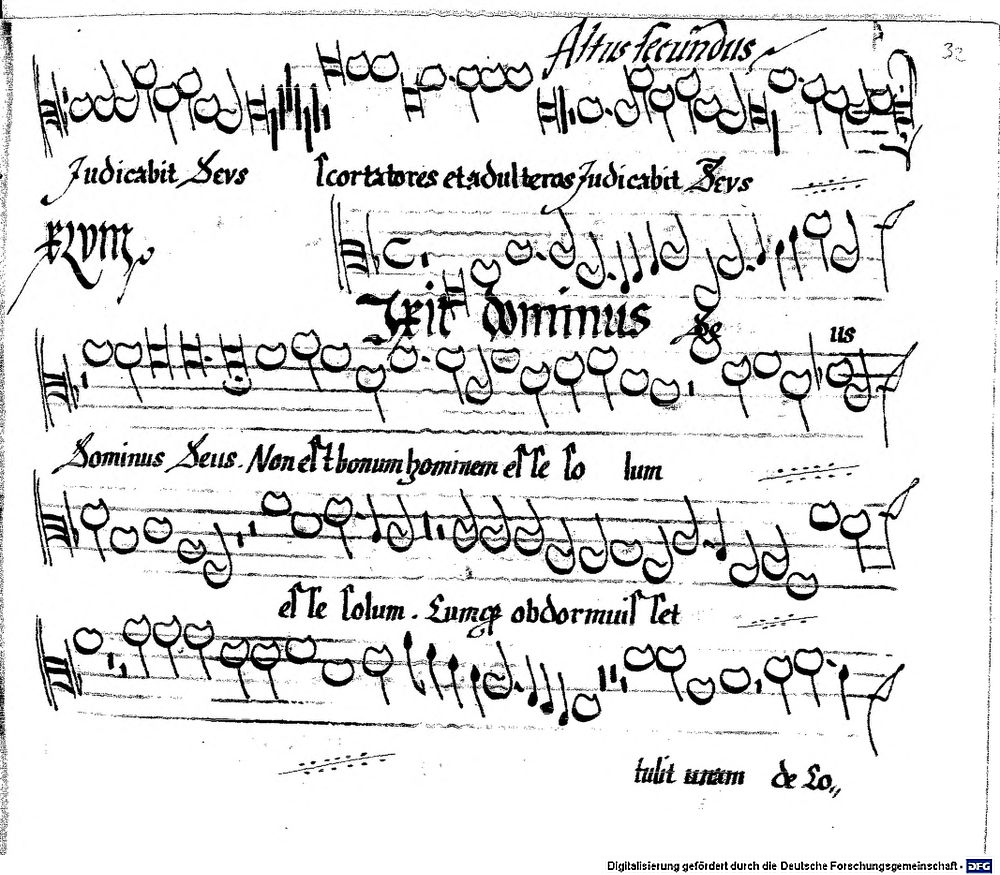 Altus secundus
32
Judicabit Deus scortatores et adulteros Judicabit Deus
Dixit dominus De us
Dominus Deus. Non est bonum hominem esse so lum
esse solum. Cumq obdormuisset
tulit unam de Co,,
Digitalisierung gefördert durch die Deutsche Forschungsgemeinschaft - DFG